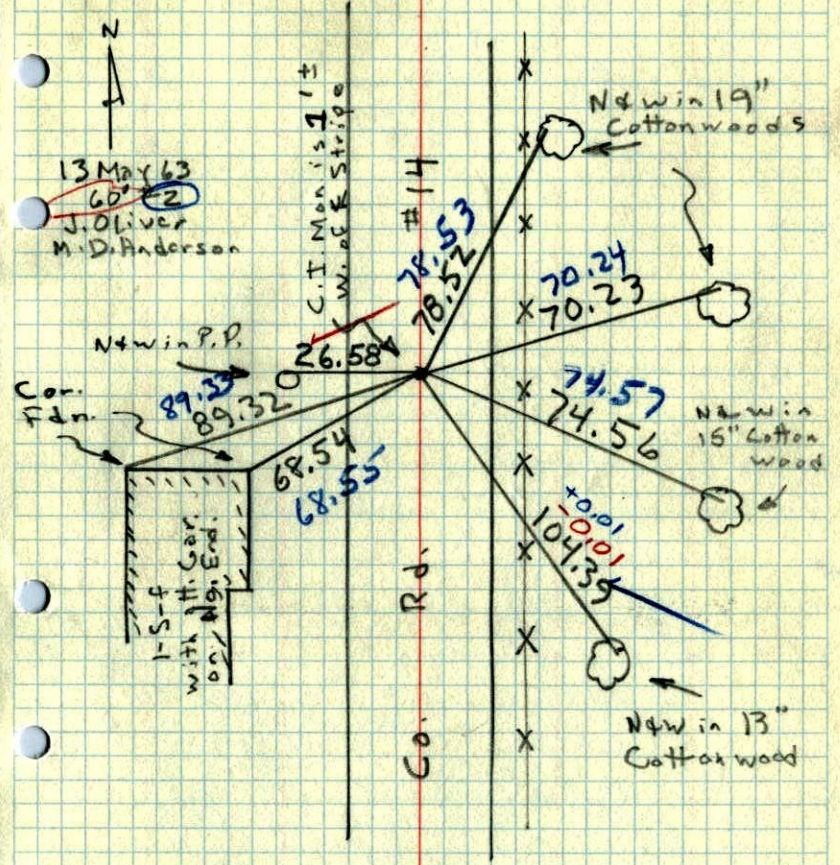 N
13 May 63
60° 2
J. Oliver
M. D. Anderson
C. I. Mon is 1' ±
W. of R Stripe
# 14
N&W in 19"
Cottonwoods
78.53
78.52
70.24
70.23
N&W in P.P.
26.58
Cor.
Fdn.
89.33
89.32
68.54
68.55
74.57
74.56
N&W in
15" Cotton
wood
+0.01
-0.01
104.39
1-S-F
with H. Gar.
on Ng. End.
Co. Rd.
N&W in 13"
Cottonwood